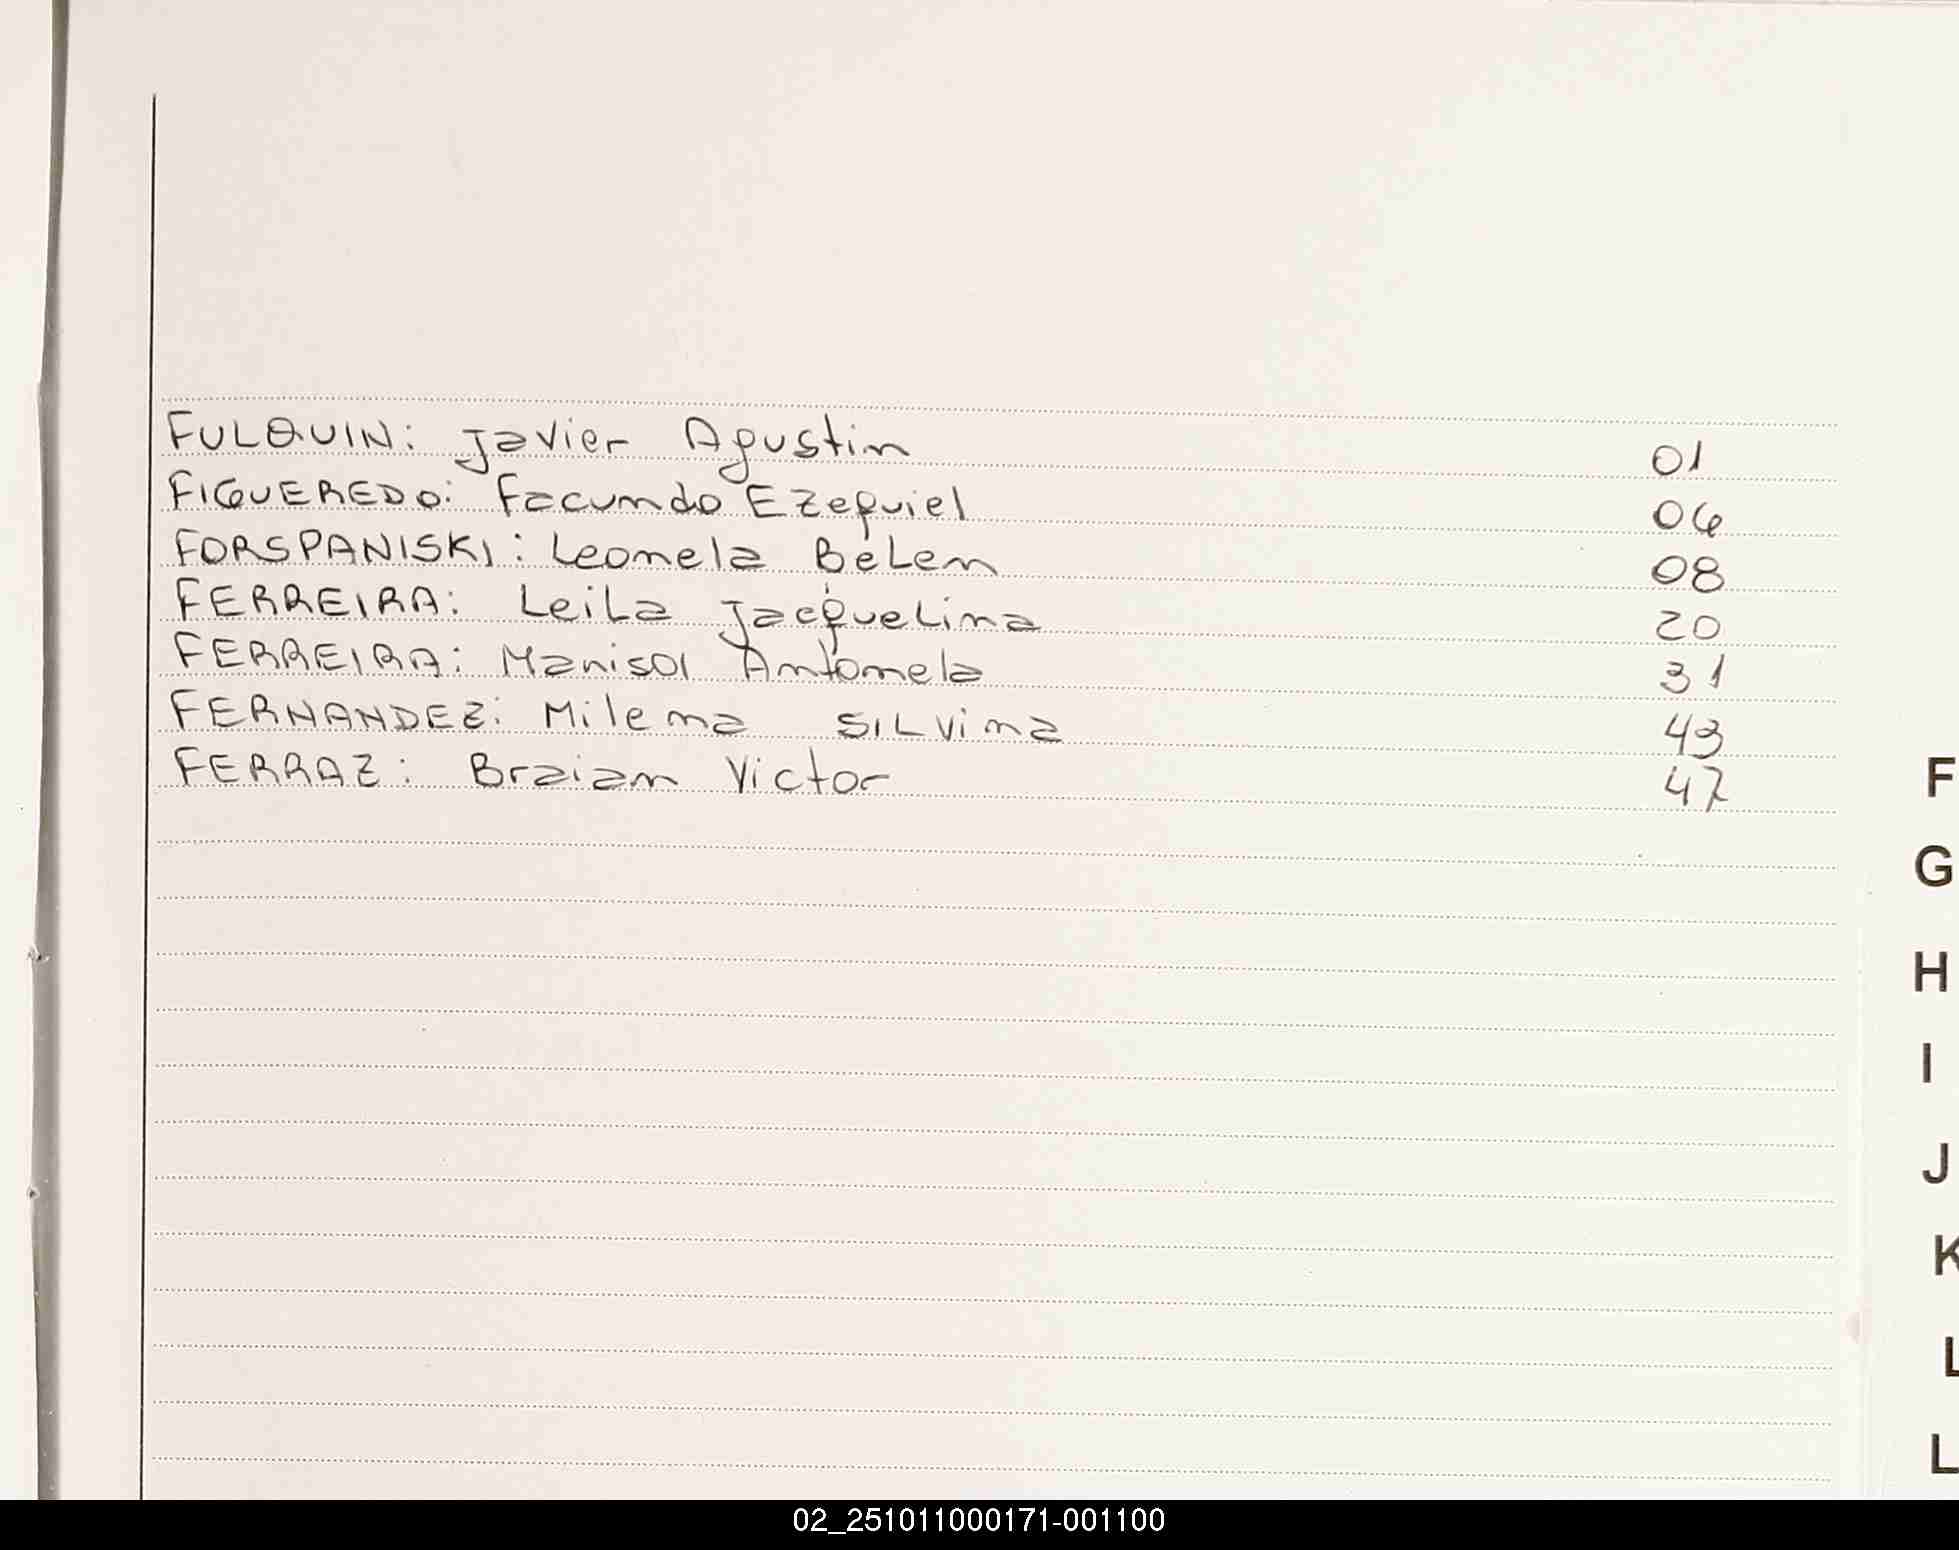 FULQUIN: Javier Agustin 01
FIGUEREDO: Facundo Ezequiel 06
FORSPANISKI: Leonela Belen 08
FERREIRA: Leila Jacquelina 20
FERREIRA: Marisol Antonela 31
FERNANDEZ: Milena Silvina 43
FERRAZ: Braian Victor 47
F
G
H
I
J
K
L
L
02_251011000171-001100